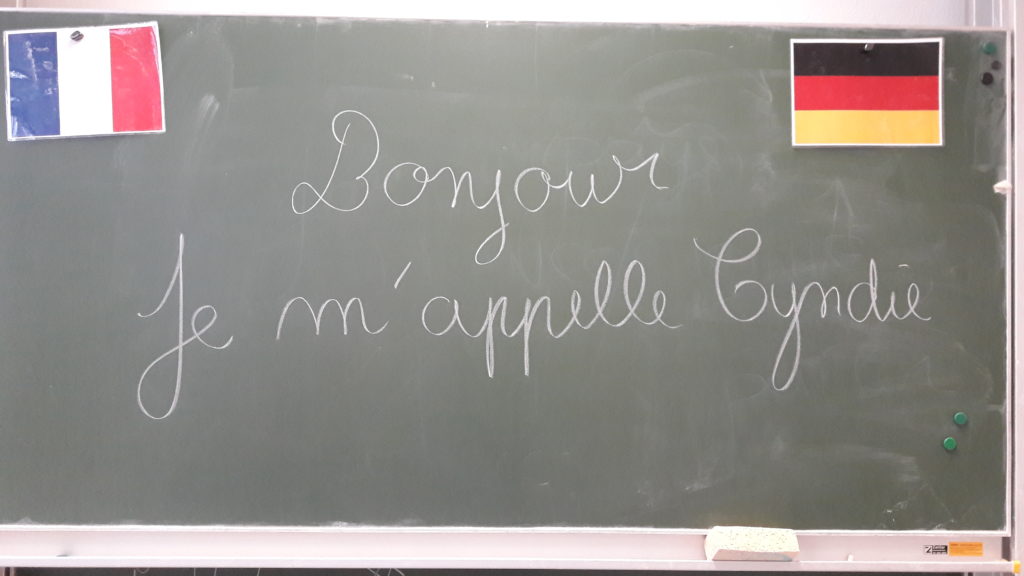 Bonjour
Je m'appelle Cyndie